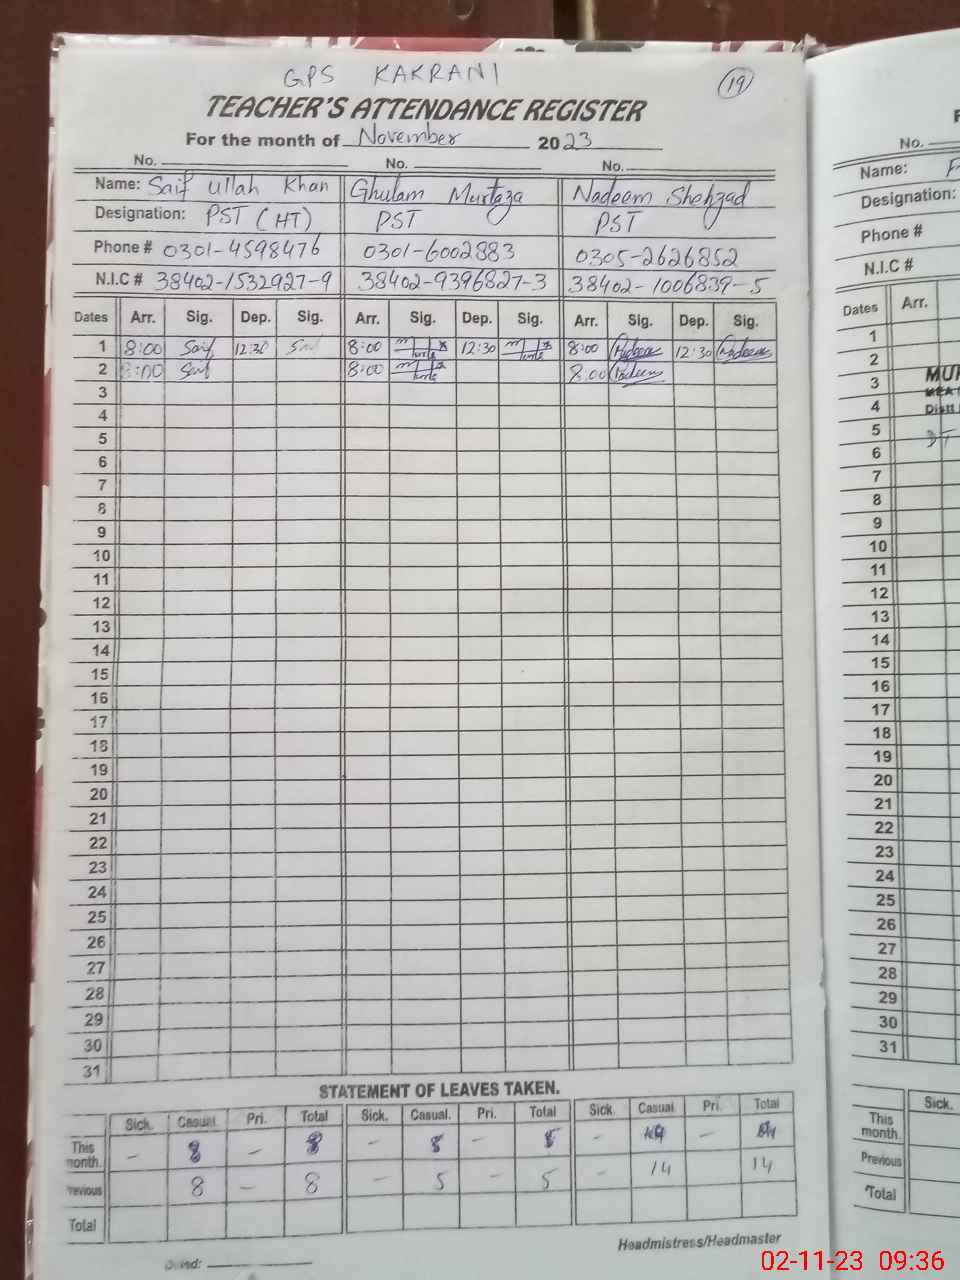 GPS KAKRANI
19
TEACHER'S ATTENDANCE REGISTER
For the month of November 2023
No. No. No.
Name: Saif Ullah Khan Ghulam Murtaza Nadeem Shehzad
Designation: PST (HT) PST PST
Phone # 0301-4598476 0301-6002883 0305-2626852
N.I.C # 38402-1532927-9 38402-9396827-3 38402-1006839-5
Dates Arr. Sig. Dep. Sig. Arr. Sig. Dep. Sig. Arr. Sig. Dep. Sig.
1 8:00 Saif 12:30 8:00 12:30 8:00 Nadeem 12:30 Nadeem
2 8:00 Saif 8:00 8:00 Nadeem
3
4
5
6
7
8
9
10
11
12
13
14
15
16
17
18
19
20
21
22
23
24
25
26
27
28
29
30
31
STATEMENT OF LEAVES TAKEN.
Sick. Casual. Pri. Total Sick. Casual. Pri. Total Sick. Casual Pri. Total
This month. - 8 - 8 - - - -
Previous 8 - 8 - 5 - 5 - 14 14
Total
Headmistress/Headmaster
No.
Name:
Designation:
Phone #
N.I.C #
Dates Arr.
1
2
3
4
5
6
7
8
9
10
11
12
13
14
15
16
17
18
19
20
21
22
23
24
25
26
27
28
29
30
31
Sick.
This month.
Previous
Total
02-11-23 09:36